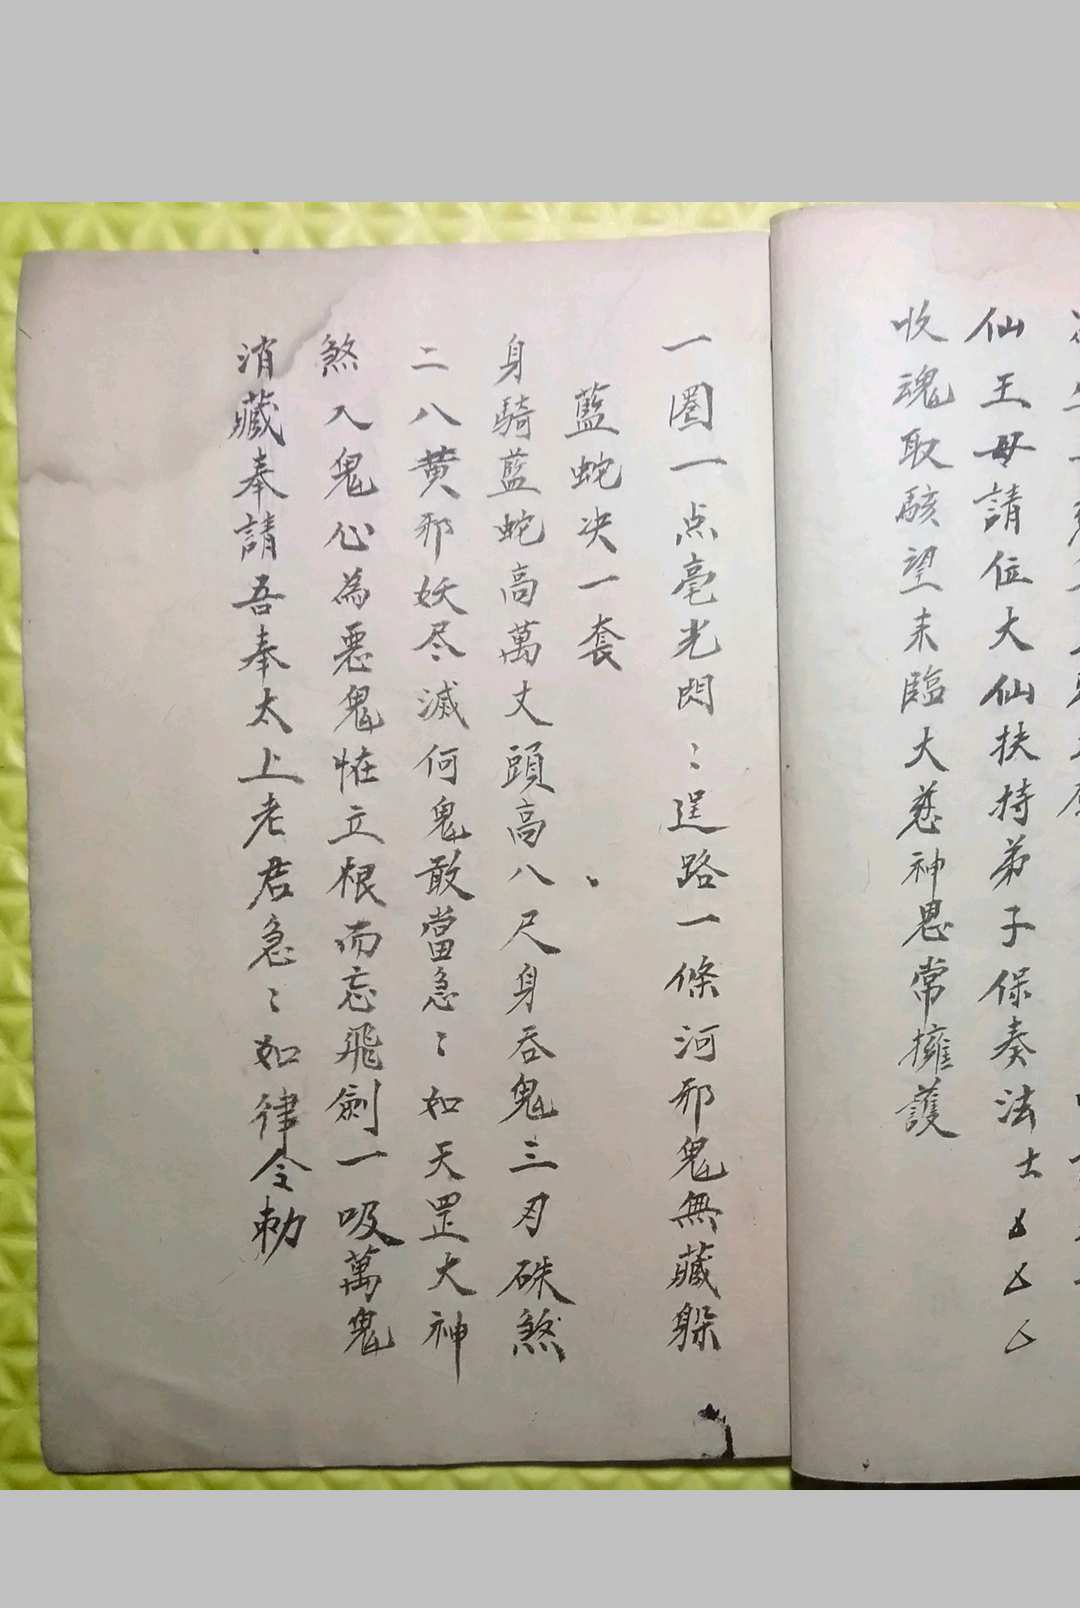 仙王母請位大仙扶持弟子保奏法士
收魂取駭望未臨大慈神恩常擁護
一圈一点毫光閃〻逞路一條河邪鬼無藏躲
藍蛇决一套
身騎藍蛇高萬丈頭高八尺身吞鬼三刃硃煞
二八黄邪妖尽滅何鬼敢當急〻如天罡大神
煞入鬼心為惡鬼恠立根而忘飛劍一吸萬鬼
消藏奉請吾奉太上老君急〻如律令勅